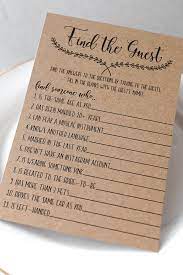 Find the Guest
FIND THE ANSWER TO THE QUESTIONS BY TALKING TO THE GUESTS.
FILL IN THE BLANKS WITH THE GUEST'S NAME.
find someone who...
1. IS THE SAME AGE AS YOU
2. HAS BEEN MARRIED 10+ YEARS
3. CAN PLAY A MUSICAL INSTRUMENT
4. KNOWS ANOTHER LANGUAGE
5. MARRIED IN THE LAST YEAR
6. DOESN'T HAVE AN INSTAGRAM ACCOUNT
7. IS WEARING SOMETHING PINK
8. IS RELATED TO THE BRIDE-TO-BE
9. HAS MORE THAN 2 PETS
10. DRIVES THE SAME CAR AS YOU
11. IS LEFT-HANDED